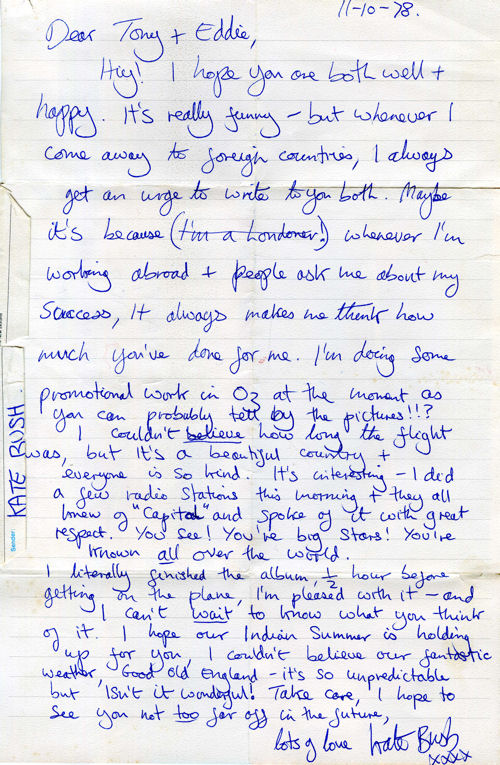 11-10-78.
Dear Tony + Eddie,
Hiy! I hope you are both well +
happy. It's really funny - but whenever I
come away to foreign countries, I always
get an urge to write to you both. Maybe
it's because (I'm a Londoner!) whenever I'm
working abroad + people ask me about my
success, It always makes me think how
much you've done for me. I'm doing some
promotional work in Oz at the moment as
you can probably tell by the pictures!!?
I couldn't believe how long the flight
was, but it's a beautiful country +
everyone is so kind. It's interesting - I did
a few radio stations this morning + they all
knew of "Capital" and spoke of it with great
respect. You see! You're big stars! You're
known all over the world.
I literally finished the album, ½ hour before
getting on the plane, I'm pleased with it - and
I can't wait, to know what you think
of it. I hope our Indian Summer is holding
up for you, I couldn't believe our fantastic
weather, Good old England - it's so unpredictable
but 'Isn't it wonderful! Take care, I hope to
see you not too far off in the future,
lots of love Kate Bush
xxxx
Sender
KATE BUSH